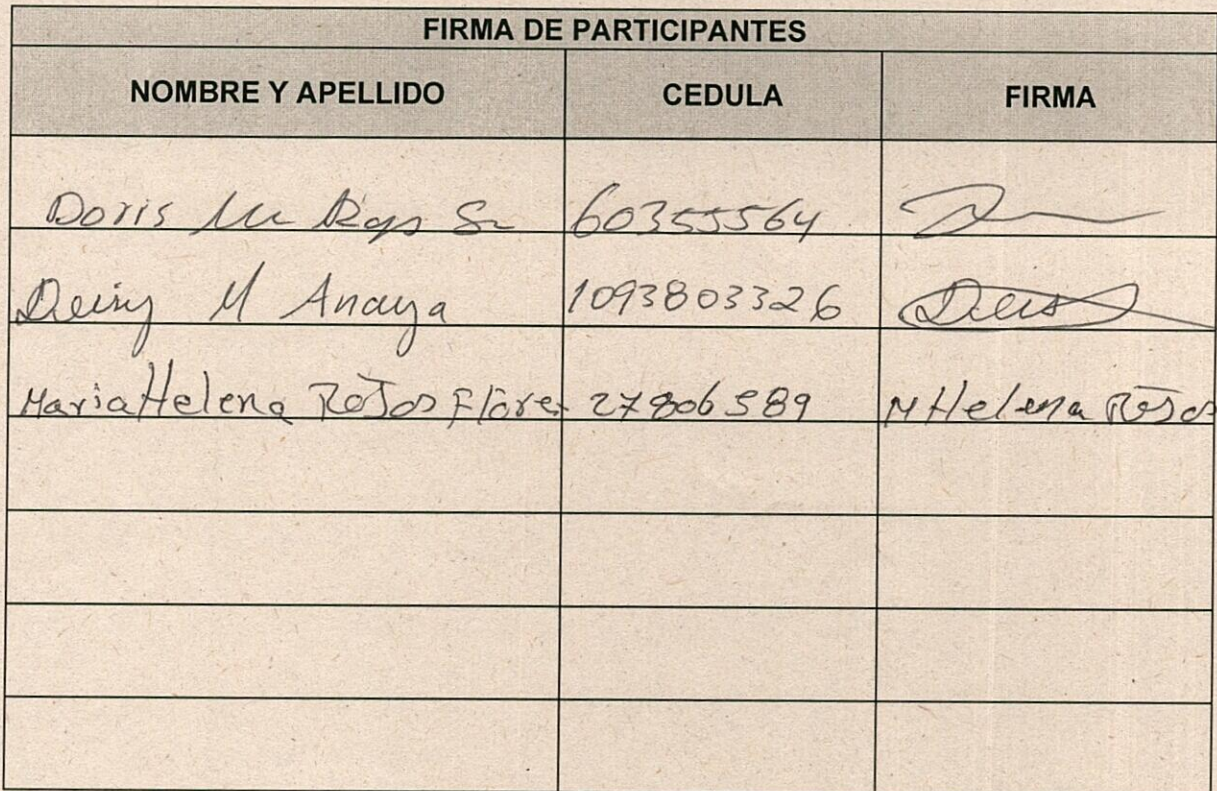 FIRMA DE PARTICIPANTES
NOMBRE Y APELLIDO CEDULA FIRMA
Doris 60355564
Deisy M Anaya 1093803326
Maria Helena Rojas Flores 27806589 M Helena Rojas